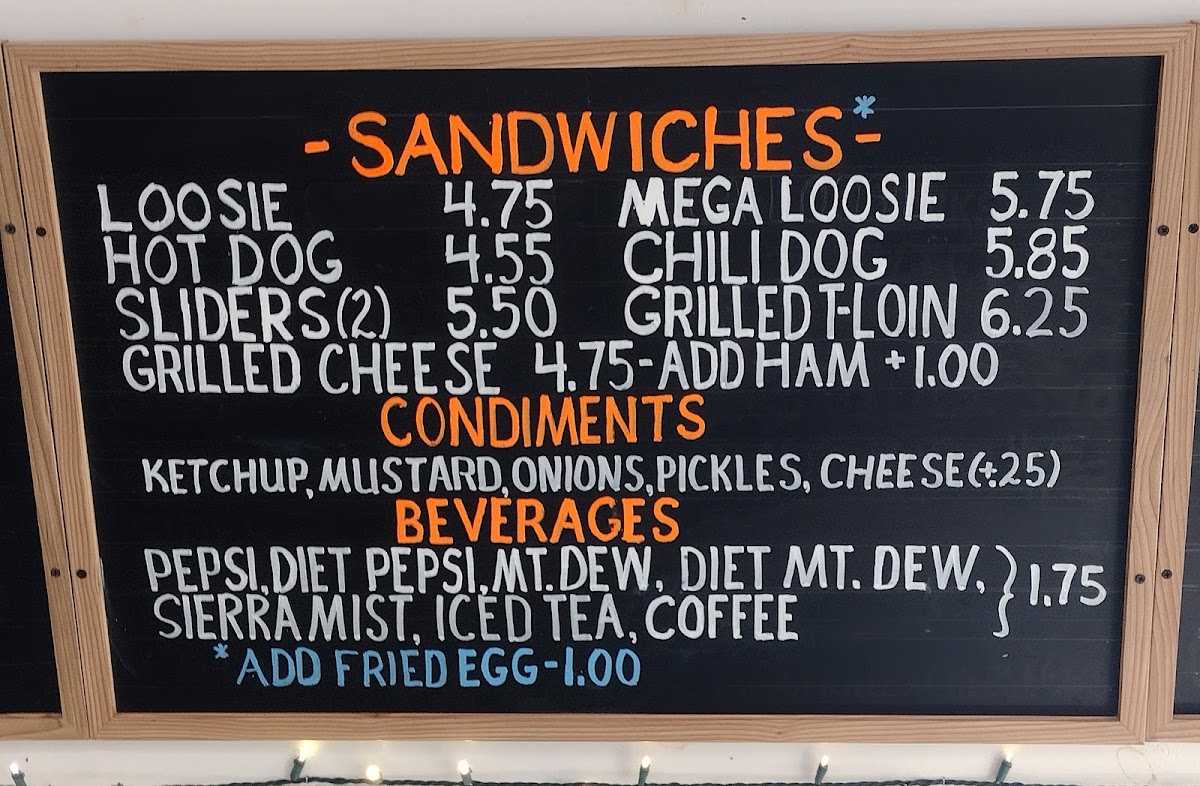 - SANDWICHES* -
LOOSIE 4.75 MEGA LOOSIE 5.75
HOT DOG 4.55 CHILI DOG 5.85
SLIDERS (2) 5.50 GRILLED T-LOIN 6.25
GRILLED CHEESE 4.75 - ADD HAM +1.00
CONDIMENTS
KETCHUP, MUSTARD, ONIONS, PICKLES, CHEESE (+.25)
BEVERAGES
PEPSI, DIET PEPSI, MT. DEW, DIET MT. DEW, } 1.75
SIERRA MIST, ICED TEA, COFFEE
*ADD FRIED EGG - 1.00